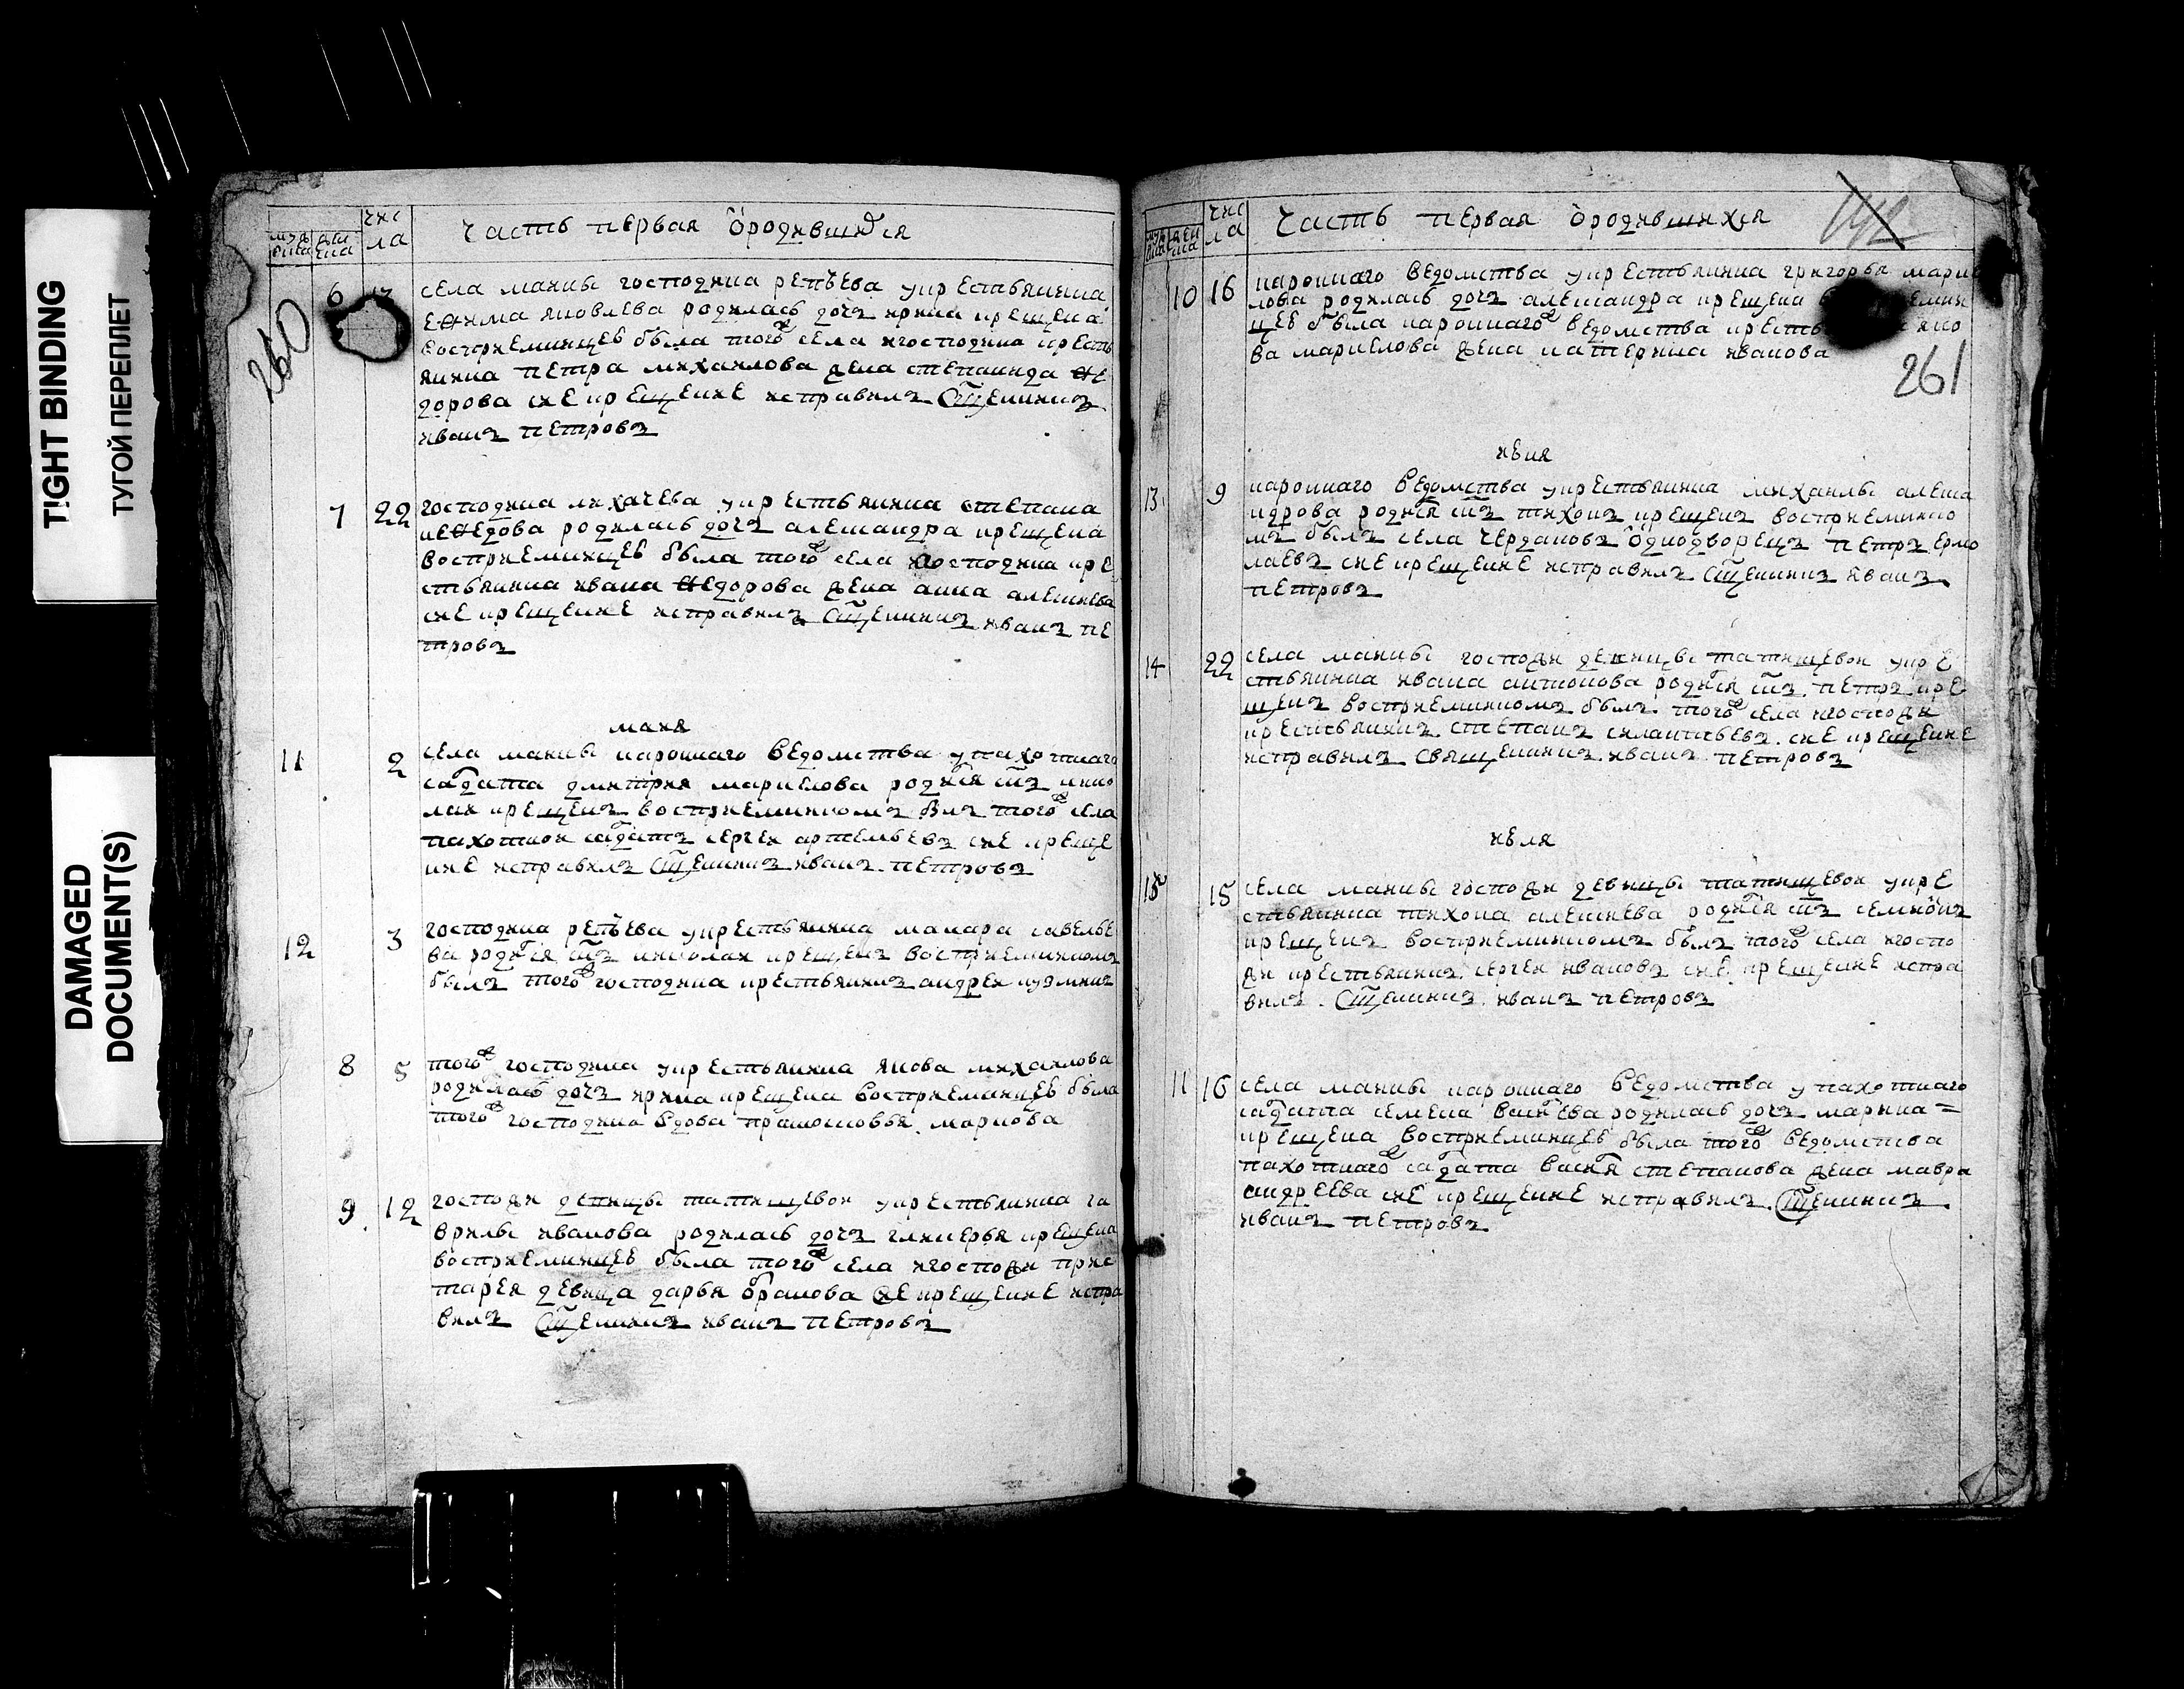 TIGHT BINDING
ТУГОЙ ПЕРЕПЛЕТ
DAMAGED
DOCUMENT(S)
260
числа
Часть первая ородившихся
6
села маины господина репьева укрестьянина
ефима яковлева родилась дочь ирина крещена
восприемницей была тогож села игосподина кресть
янина петра михаилова жена степанида фе
дорова сие крещение исправилъ Сщенникъ
иванъ петровъ
7 22 господина лихачева укрестьянина степана
нефедова родилась дочь александра крещена
восприемницей была тогож села игосподина кре
стьянина ивана федорова жена анна алексиева
сие крещение исправилъ Сщенникъ иванъ пе
тровъ
маия
11 2 села маины коронного ведомства упахотнаго
салдата дмитрия маркелова родился снъ нико
лаи крещенъ восприемникомъ былъ тогож села
пахотнои салдатъ сергеи артемьевъ сие креще
ние исправилъ Сщенникъ иванъ петровъ
12 3 господина репьева укрестьянина макара савелье
ва родился снъ николаи крещенъ восприемникомъ
былъ тогож господина крестьянинъ андреи кузминъ
8 5 тогож господина укрестьянина якова михаилова
родилась дочь ирина крещена восприемницей была
тогож господина вдова прасковья маркова
9 12 госпожи девицы татищевои укрестьянина га
врилы иванова родилась дочь гликерья крещена
восприемницей была тогож села игоспожи
девица дарья сие крещение испра
вилъ Сщенникъ иванъ петровъ
числа
Часть первая ородившихся
10 16 коронного ведомства укрестьянина григорья марке
лова родилась дочь александра крещена
цей была коронного ведомства
ва маркелова жена катерина иванова
261
июня
13 9 коронного ведомства укрестьянина михаилы алекса
ндрова родился снъ тихонъ крещенъ восприемнико
мъ былъ села чердаковъ однодворецъ петръ ермо
лаевъ сие крещение исправилъ Сщенникъ иванъ
петровъ
14 22 села маины госпожи девицы татищевои укре
стьянина ивана антонова родился снъ петръ кре
щенъ восприемникомъ былъ тогож села игоспожи
крестьянинъ степанъ силантьевъ сие крещение
исправилъ священникъ иванъ петровъ
июля
15 15 села маины госпожи девицы татищевои укре
стьянина тихона алексиева родился снъ семионъ
крещенъ восприемникомъ былъ тогож села игоспо
жи крестьянинъ сергеи ивановъ сие крещение испра
вилъ Сщенникъ иванъ петровъ
11 16 села маины коронного ведомства упахотнаго
салдата семена васильева родилась дочь марина =
крещена восприемницей была тогож ведомства
пахотнаго салдата василя степанова жена мавра
андреева сие крещение исправилъ Сщенникъ
иванъ петровъ